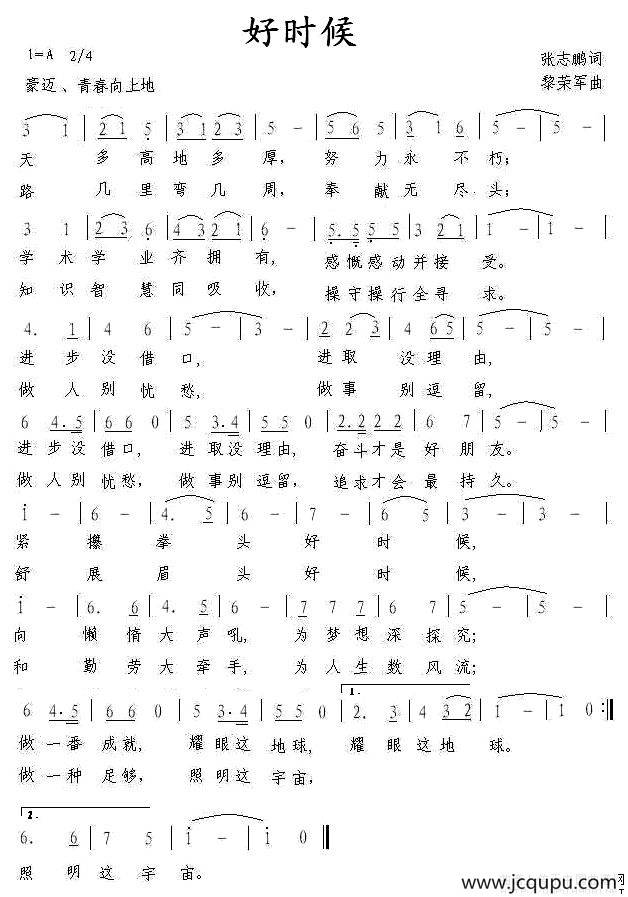 好时候
1=A 2/4
张志鹏词
豪迈、青春向上地
黎荣军曲
3 1 | 2 1 5 | 3 1 2 3 | 5 – | 5 6 5 | 3 1 6 | 5 – | 5 – |
天 多高地多厚， 努力永不朽；
路 几里弯几周， 奉献无尽头；
3 1 | 2 3 6 | 4 3 2 3 | 6 – | 5. 5 5 5 | 3 2 1 | 1 – | 1 – |
学术学业齐拥有， 感慨感动并接受。
知识智慧同吸收， 操守操行全寻求。
4. 1 | 4 6 | 5 – | 3 – | 1 2 3 | 4 6 5 | 5 – | 5 – |
进步没借口， 进取没理由，
做人别忧愁， 做事别逗留，
6 4.5 | 6 6 0 | 5 3.4 | 5 5 0 | 2.2 2 2 | 6 7 | 5 – | 5 – |
进步没借口， 进取没理由， 奋斗才是好朋友。
做人别忧愁， 做事别逗留， 追求才会最持久。
1 – | 6 – | 4. 5 | 6 – | 7 – | 6 5 | 3 – | 3 – |
紧攥拳头好时候，
舒展眉头好时候，
1 – | 6. 6 | 6 4 | 4. 5 | 6 – | 7. 7 | 7 2 | 6 7 | 5 – | 5 – |
向懒惰大声吼， 为梦想深探究；
和勤劳大牵手， 为人生数风流；
6 4.5 | 6 6 0 | 5 3.4 | 5 5 0 | 1. 2. 3 | 4 3 2 | 1 – | 1 0 :||
做一番成就， 耀眼这地球， 耀眼这地球。
做一种足够， 照明这宇宙，
2. 6. 6 | 7 5 | 1 – | 1 0 ||
照明这宇宙。
www.jcqupu.com